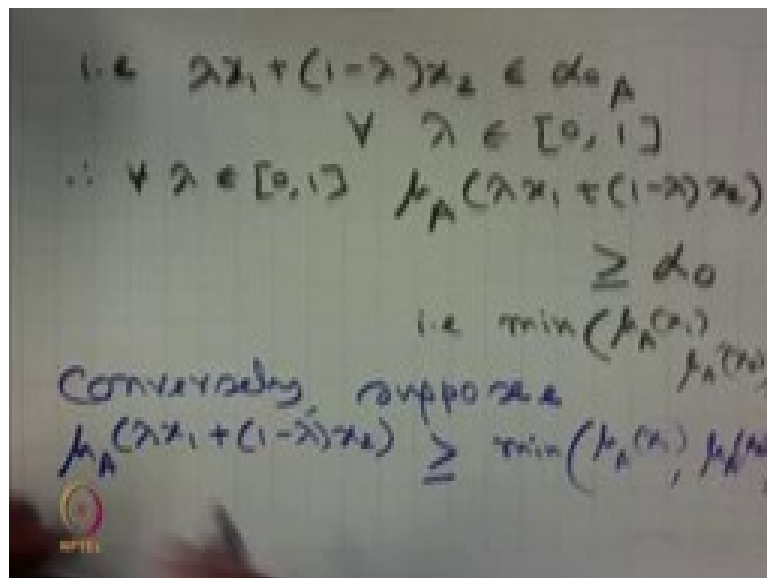 i.e λx₁ + (1-λ)x₂ ∈ α₀_A
∀ λ ∈ [0, 1]
∴ ∀ λ ∈ [0, 1] μ_A(λx₁ + (1-λ)x₂)
≥ α₀
i.e min(μ_A(x₁)
μ_A(x₂)
Conversely, suppose
μ_A(λx₁ + (1-λ)x₂) ≥ min(μ_A(x₁), μ_A(x₂)
NPTEL